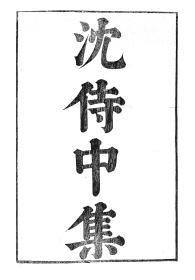 沈侍中集